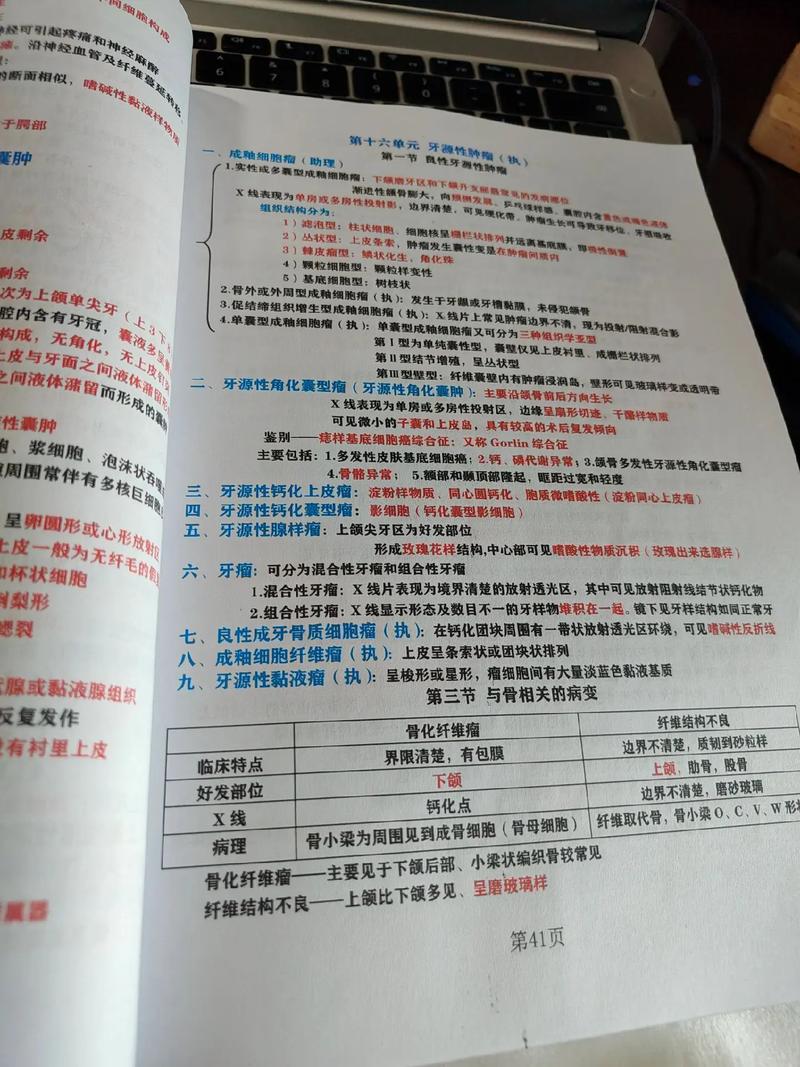 下间细胞构成
神经可引起疼痛和神经麻醉
瘪。沿神经血管及纤维蔓延转移
的断面相似，嗜碱性黏液样物质
于腭部
囊肿
皮剩余
剩余
次为上颌单尖牙（上3下
腔内含有牙冠，囊液多呈
构成，无角化，无上皮钉
上皮与牙面之间液体潴留形
之间液体潴留而形成的囊
性囊肿
胞、浆细胞、泡沫状吞噬
周围常伴有多核巨细胞
呈卵圆形或心形放射区
上皮一般为无纤毛的
和杯状细胞
倒梨形
鳃裂
腺或黏液腺组织
反复发作
没有衬里上皮
属器
6 7 8 9 0
第十六单元 牙源性肿瘤（执）
第一节 良性牙源性肿瘤
一、成釉细胞瘤（助理）
1.实性或多囊型成釉细胞瘤：下颌磨牙区和下颌升支部最常见的发病部位
渐进性颌骨膨大，向颊侧发展、乒乓球样感、囊腔内含黄色或褐色液体
X 线表现为单房或多房性投射影，边界清楚，可见硬化带。肿瘤生长可导致牙移位、牙根吸收
组织结构分为：
1）滤泡型：柱状细胞、细胞核呈栅栏状排列并远离基底膜，即极性倒置
2）丛状型：上皮条索，肿瘤发生囊性变是在肿瘤间质内
3）棘皮瘤型：鳞状化生、角化珠
4）颗粒细胞型：颗粒样变性
5）基底细胞型：树枝状
2.骨外或外周型成釉细胞瘤（执）：发生于牙龈或牙槽黏膜，未侵犯颌骨
3.促结缔组织增生型成釉细胞瘤（执）：X 线片上常见肿瘤边界不清，现为投射/阻射混合影
4.单囊型成釉细胞瘤（执）：单囊型成釉细胞瘤又可分为三种组织学亚型
第Ⅰ型为单纯囊性型，囊壁仅见上皮衬里、成栅栏状排列
第Ⅱ型结节增殖，呈丛状型
第Ⅲ型壁型：纤维囊壁内有肿瘤浸润岛，壁形可见玻璃样变或透明带
二、牙源性角化囊型瘤（牙源性角化囊肿）：主要沿颌骨前后方向生长
X 线表现为单房或多房性投射区，边缘呈扇形切迹、干酪样物质
可见微小的子囊和上皮岛，具有较高的术后复发倾向
鉴别——痣样基底细胞癌综合征：又称 Gorlin 综合征
主要包括：1.多发性皮肤基底细胞癌；2.钙、磷代谢异常；3.颌骨多发性牙源性角化囊型瘤
4.骨骼异常； 5、额部和颞顶部隆起，眶距过宽和轻度
三、牙源性钙化上皮瘤：淀粉样物质、同心圆钙化、胞质微嗜酸性（淀粉同心上皮瘤）
四、牙源性钙化囊型瘤：影细胞（钙化囊型影细胞）
五、牙源性腺样瘤：上颌尖牙区为好发部位
形成玫瑰花样结构,中心部可见嗜酸性物质沉积（玫瑰出来选腺样）
六、牙瘤：可分为混合性牙瘤和组合性牙瘤
1.混合性牙瘤：X 线片表现为境界清楚的放射透光区，其中可见放射阻射线结节状钙化物
2.组合性牙瘤：X 线显示形态及数目不一的牙样物堆积在一起。镜下见牙样结构如同正常牙
七、良性成牙骨质细胞瘤（执）：在钙化团块周围有一带状放射透光区环绕，可见嗜碱性反折线
八、成釉细胞纤维瘤（执）：上皮呈条索状或团块状排列
九、牙源性黏液瘤（执）：呈梭形或星形，瘤细胞间有大量淡蓝色黏液基质
第三节 与骨相关的病变
骨化纤维瘤 纤维结构不良
临床特点 界限清楚，有包膜 边界不清楚，质韧到砂粒样
好发部位 下颌 上颌，肋骨，股骨
X 线 钙化点 边界不清楚，磨砂玻璃
病理 骨小梁为周围见到成骨细胞（骨母细胞） 纤维取代骨，骨小梁 O、C、V、W 形状
骨化纤维瘤——主要见于下颌后部、小梁状编织骨较常见
纤维结构不良——上颌比下颌多见、呈磨玻璃样
第41页